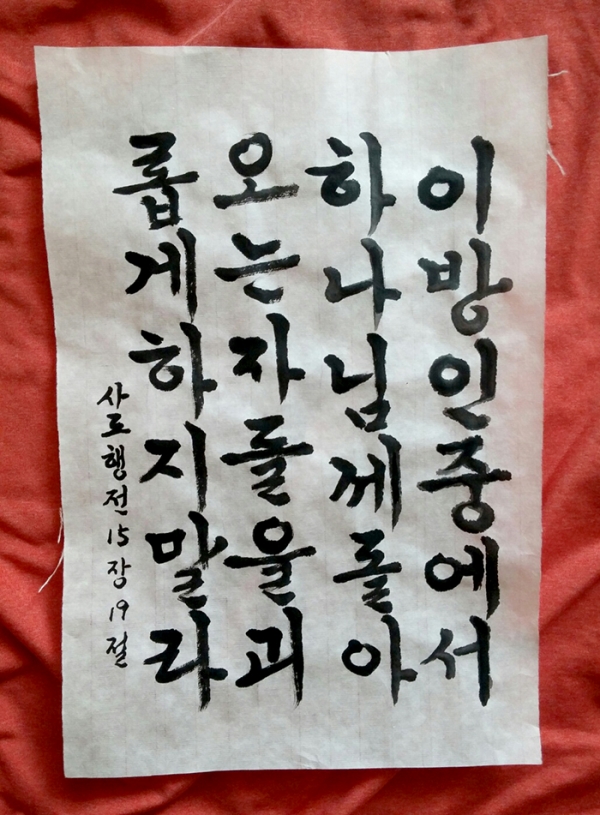 이방인중에서
하나님께돌아
오는자들을괴
롭게하지말라
사도행전15장19절